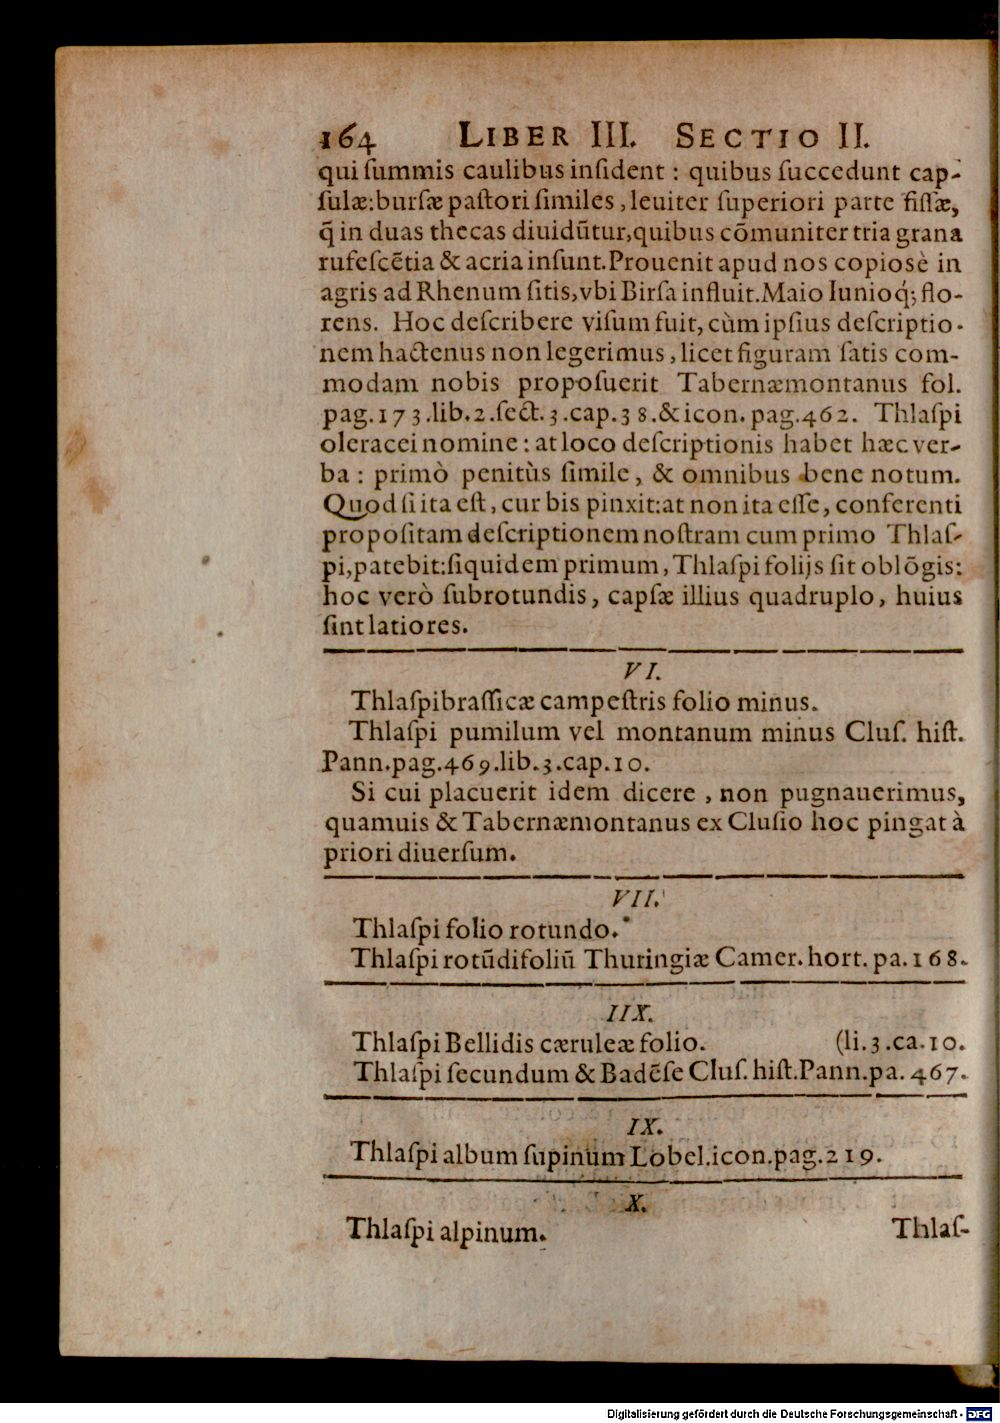 164 LIBER III. SECTIO II.
qui ſummis caulibus inſident : quibus ſuccedunt cap-
ſulæ:burſæ paſtori ſimiles , leuiter ſuperiori parte fiſſæ,
q̃ in duas thecas diuidũtur,quibus cõmuniter tria grana
rufeſcẽtia & acria inſunt.Prouenit apud nos copiosè in
agris ad Rhenum ſitis,vbi Birſa influit.Maio Iunioq́; flo-
rens. Hoc deſcribere viſum fuit, cùm ipſius deſcriptio-
nem hactenus non legerimus , licet figuram ſatis com-
modam nobis propoſuerit Tabernæmontanus fol.
pag.173.lib.2.ſect.3.cap.38.& icon. pag.462. Thlaſpi
oleracei nomine : at loco deſcriptionis habet hæc ver-
ba : primò penitùs ſimile , & omnibus bene notum.
Quod ſi ita eſt , cur bis pinxit:at non ita eſſe , conferenti
propoſitam deſcriptionem noſtram cum primo Thlaſ-
pi,patebit:ſiquidem primum , Thlaſpi folijs ſit oblõgis:
hoc verò ſubrotundis , capſæ illius quadruplo , huius
ſint latiores.
VI.
Thlaſpi braſſicæ campeſtris folio minus.
Thlaſpi pumilum vel montanum minus Cluſ. hiſt.
Pann.pag.469.lib.3.cap.10.
Si cui placuerit idem dicere , non pugnauerimus,
quamuis & Tabernæmontanus ex Cluſio hoc pingat à
priori diuerſum.
VII.
Thlaſpi folio rotundo.
Thlaſpi rotũdifoliũ Thuringiæ Camer. hort. pa.168.
IIX.
Thlaſpi Bellidis cæruleæ folio. (li.3.ca.10.
Thlaſpi ſecundum & Badẽſe Cluſ. hiſt.Pann.pa. 467.
IX.
Thlaſpi album ſupinum Lobel.icon.pag.219.
X.
Thlaſpi alpinum. Thlaſ-
Digitalisierung gefördert durch die Deutsche Forschungsgemeinschaft - DFG